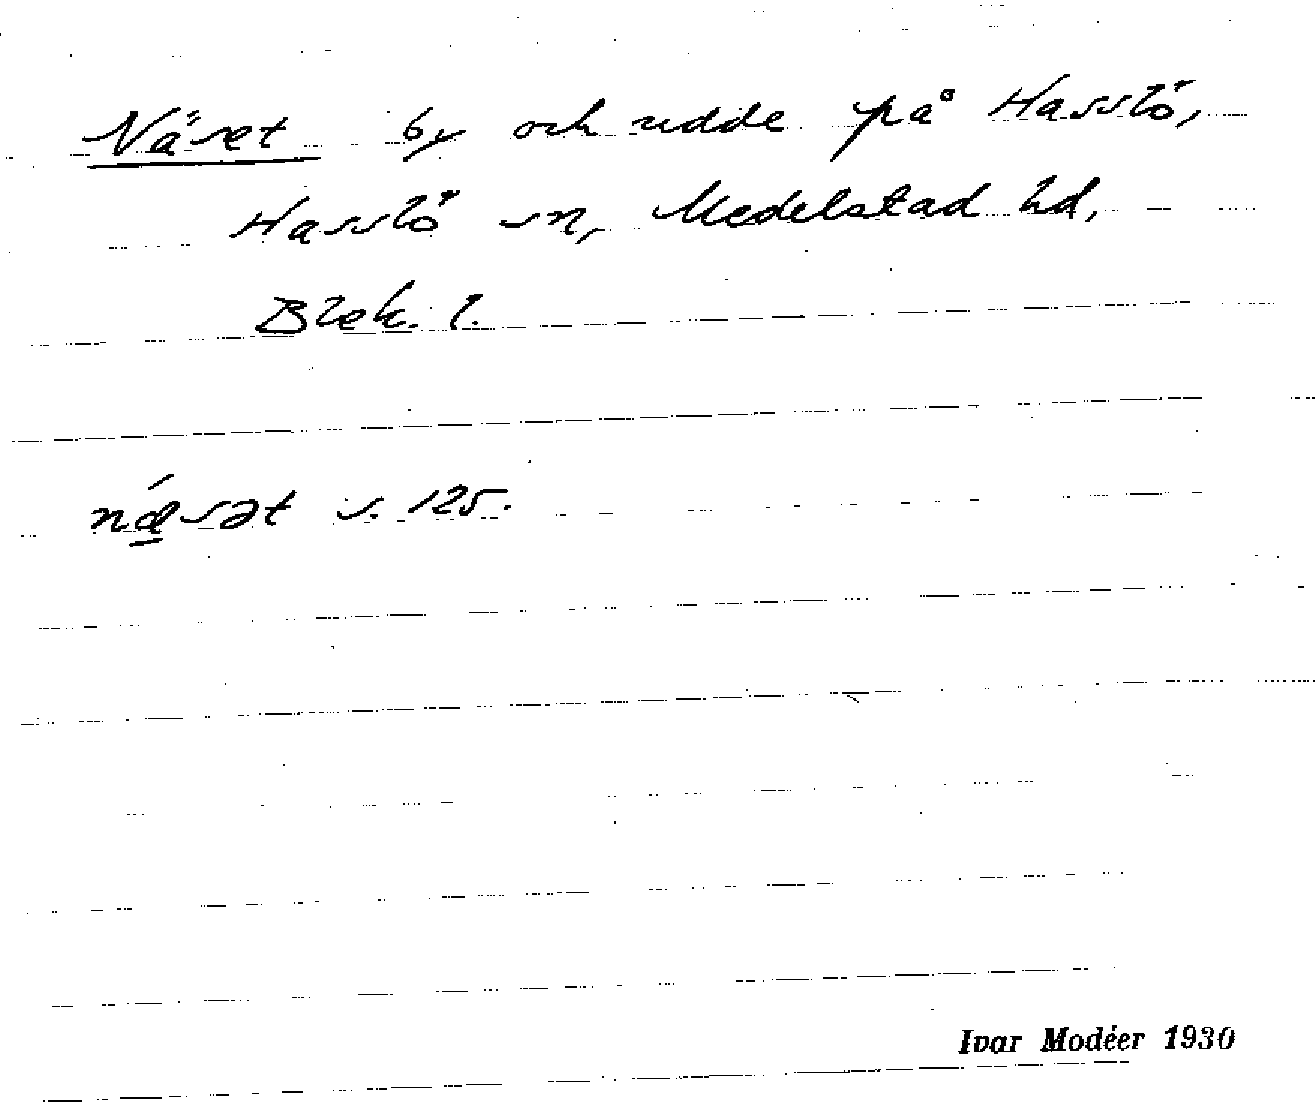 Näset by och udde på Hasslö,
Hasslö sn, Medelstad hd,
Blek. l.
nǽ̠sət s. 125.
Ivar Modéer 1930